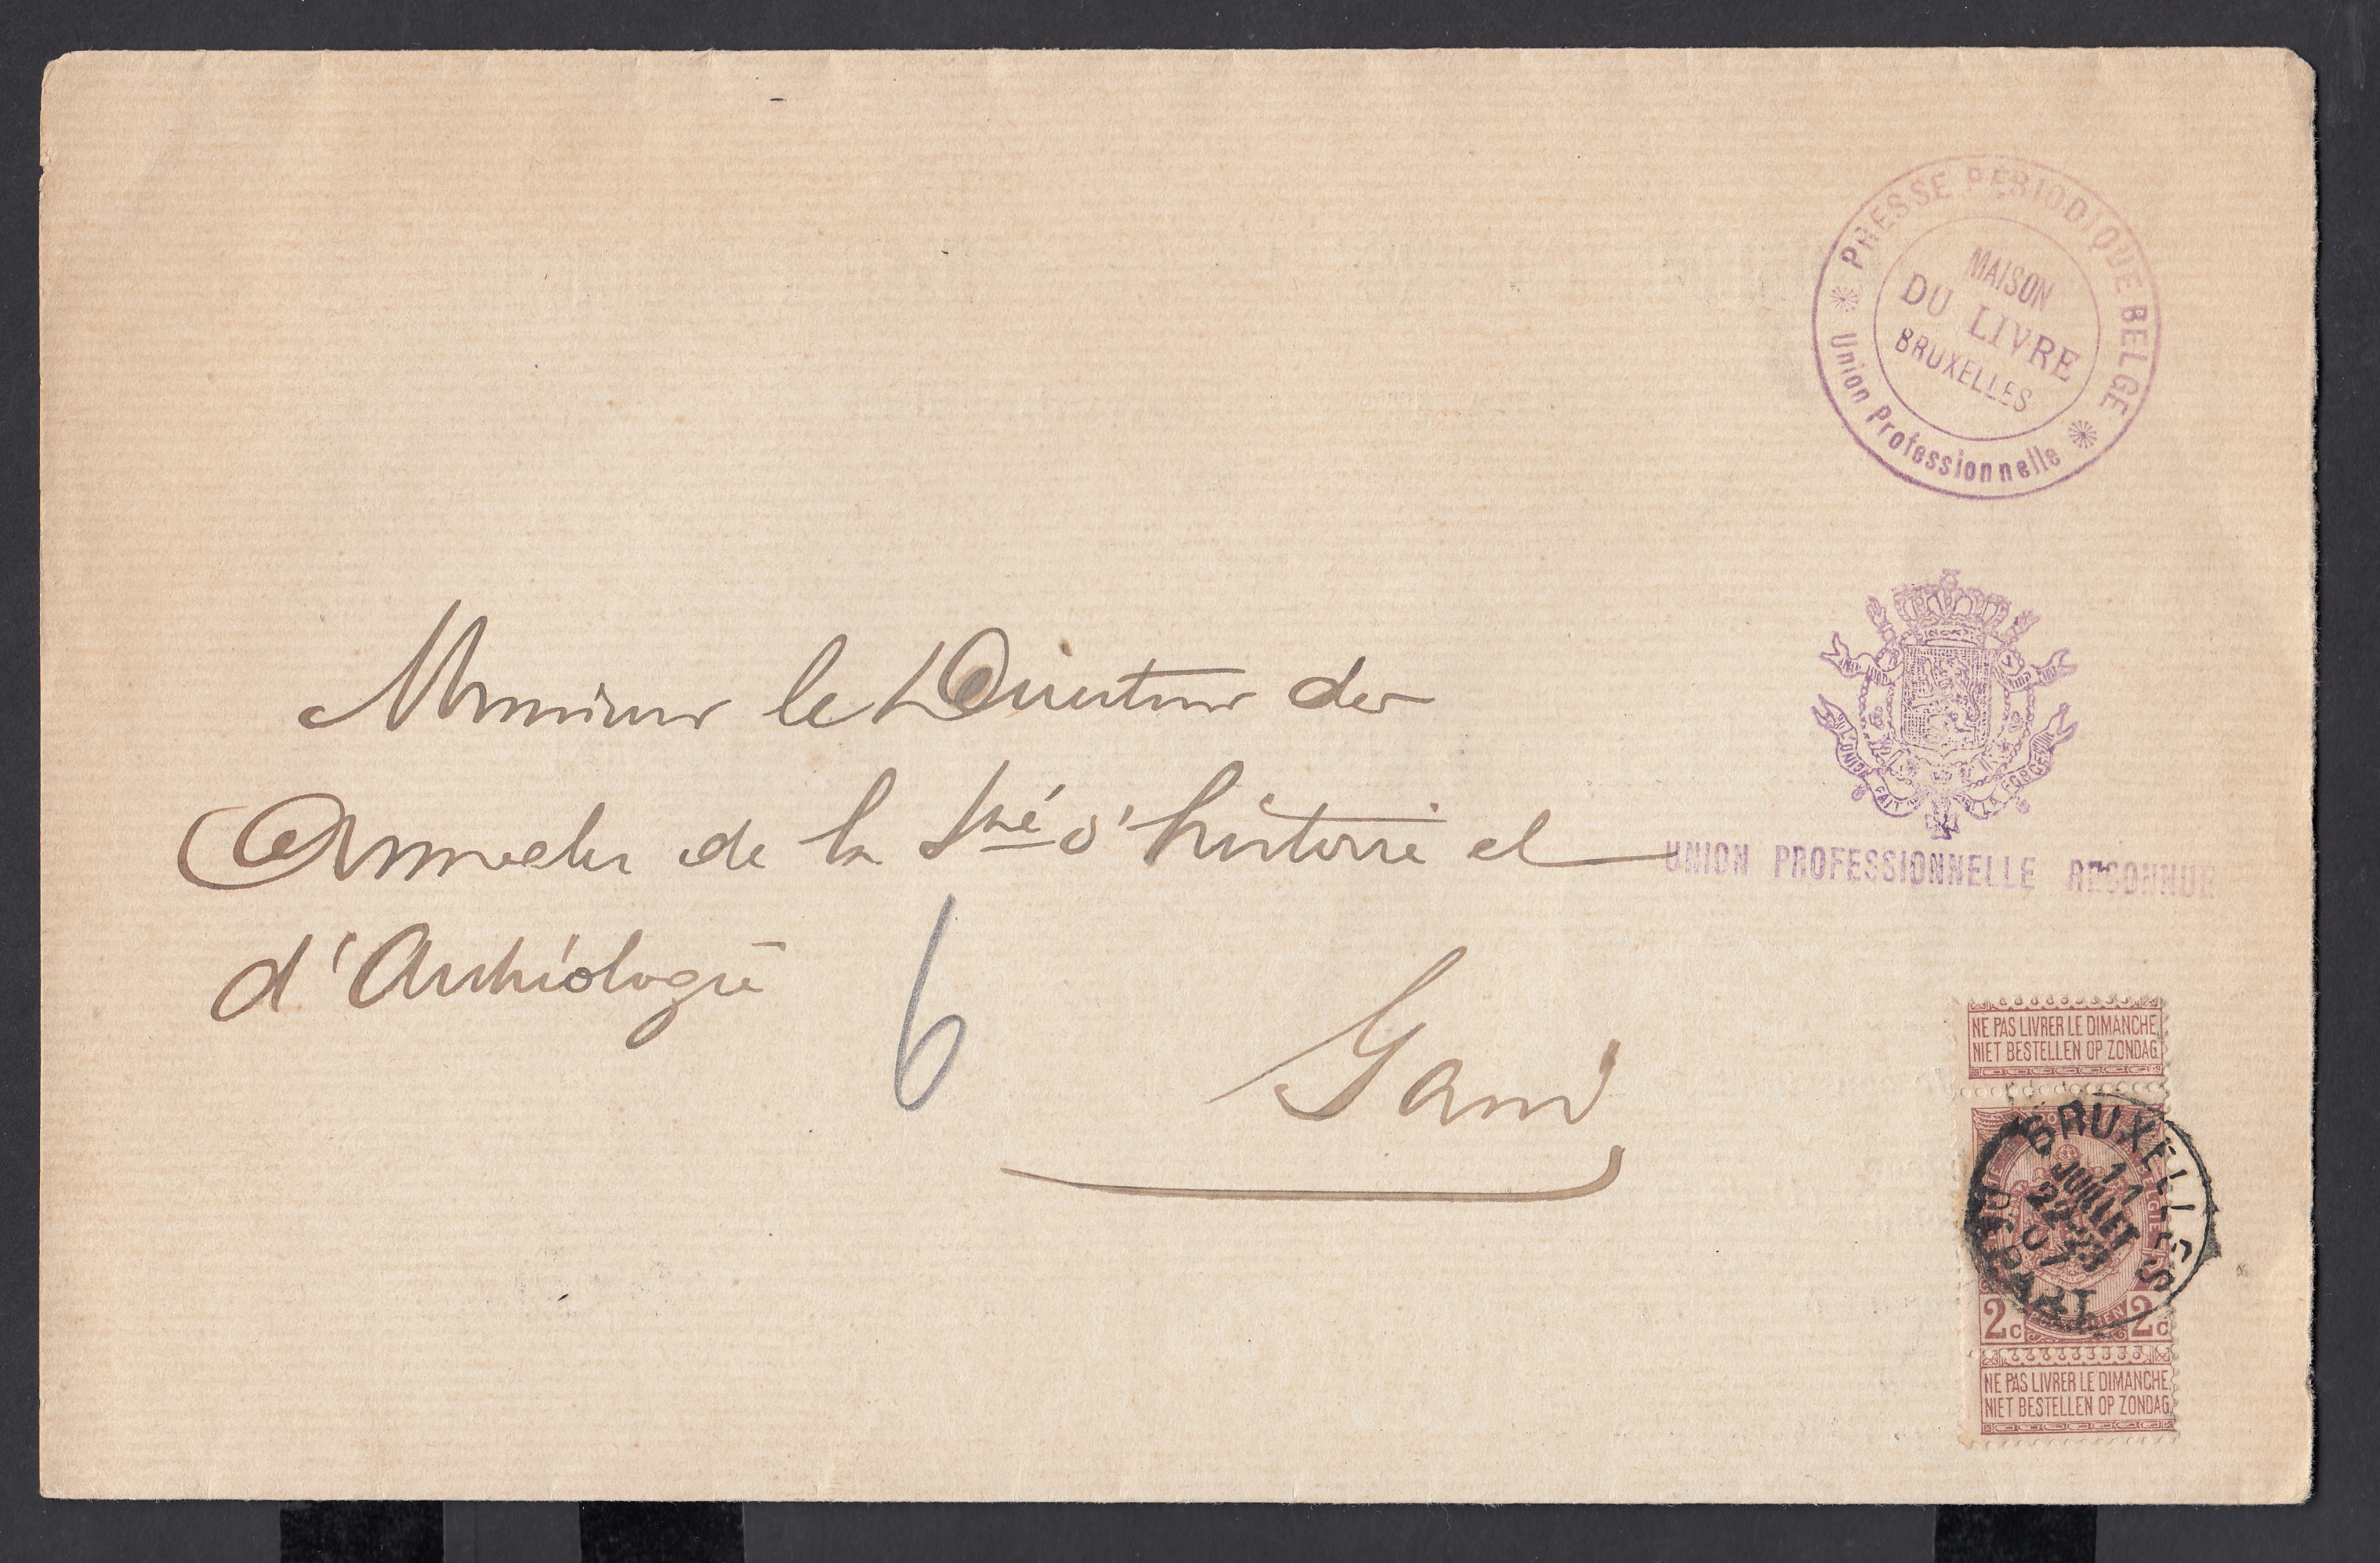 PRESSE PÉRIODIQUE BELGE
MAISON
DU LIVRE
BRUXELLES
Union Professionnelle
Monsieur le Directeur des
Annales de la Sté d'histoire et
d'Archéologie
6
Gand
L'UNION FAIT LA FORCE
UNION PROFESSIONNELLE RECONNUE
NE PAS LIVRER LE DIMANCHE
NIET BESTELLEN OP ZONDAG
BRUXELLES
11
JUILLET
22-23
07
DÉPART
2c 2c
NE PAS LIVRER LE DIMANCHE
NIET BESTELLEN OP ZONDAG